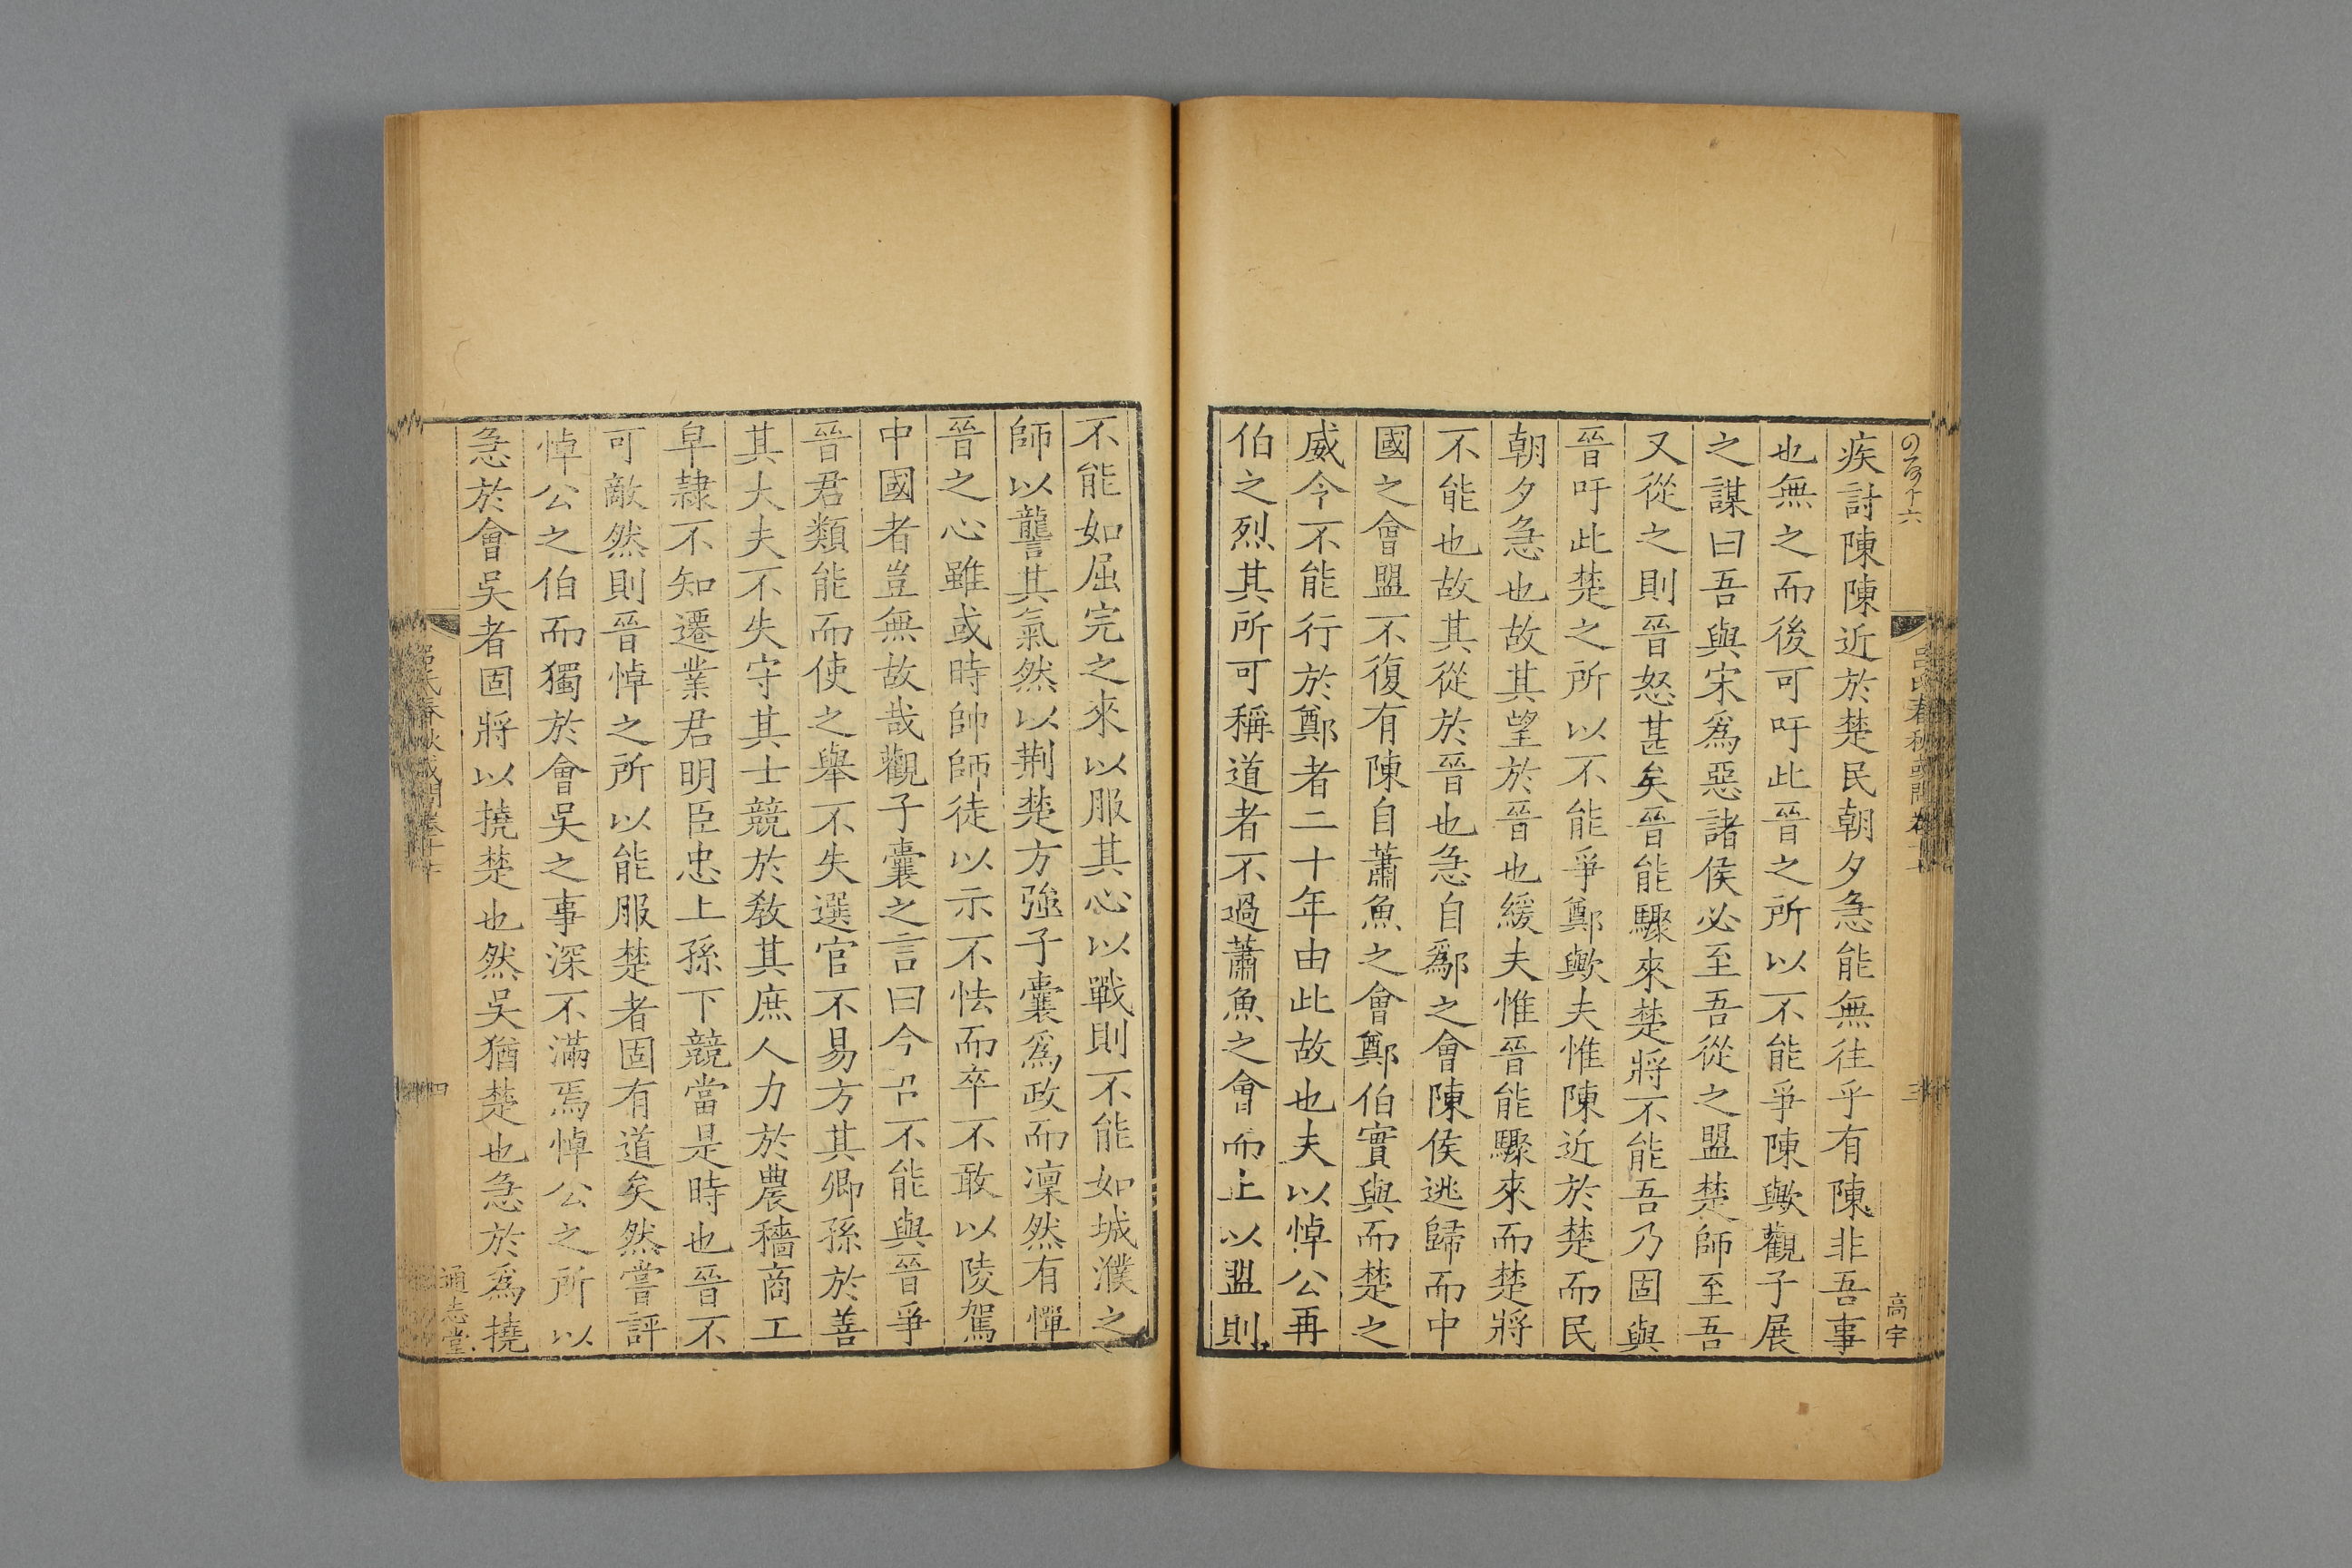 疾討陳陳近於楚民朝夕急能無往乎有陳非吾事
也無之而後可吁此晉之所以不能爭陳歟觀子展
之謀曰吾與宋爲惡諸侯必至吾從之盟楚師至吾
又從之則晉怒甚矣晉能驟來楚將不能吾乃固與
晉吁此楚之所以不能爭鄭歟夫惟陳近於楚而民
朝夕急也故其望於晉也緩夫惟晉能驟來而楚將
不能也故其從於晉也急自鄬之會陳侯逃歸而中
國之會盟不復有陳自蕭魚之會鄭伯實與而楚之
威今不能行於鄭者二十年由此故也夫以悼公再
伯之烈其所可稱道者不過蕭魚之會而上以盟則
高宇
不能如屈完之來以服其心以戰則不能如城濮之
師以讋其氣然以荆楚方強子囊爲政而凜然有憚
晉之心雖或時帥師徒以示不怯而卒不敢以陵駕
中國者豈無故哉觀子囊之言曰今吾不能與晉爭
晉君類能而使之舉不失選官不易方其卿孫於善
其大夫不失守其士競於敎其庶人力於農穡商工
皁隷不知遷業君明臣忠上孫下競當是時也晉不
可敵然則晉悼之所以能服楚者固有道矣然嘗評
悼公之伯而獨於會吳之事深不滿焉悼公之所以
急於會吳者固將以撓楚也然吳猶楚也急於爲撓
呂氏春秋或問卷十
四
通志堂